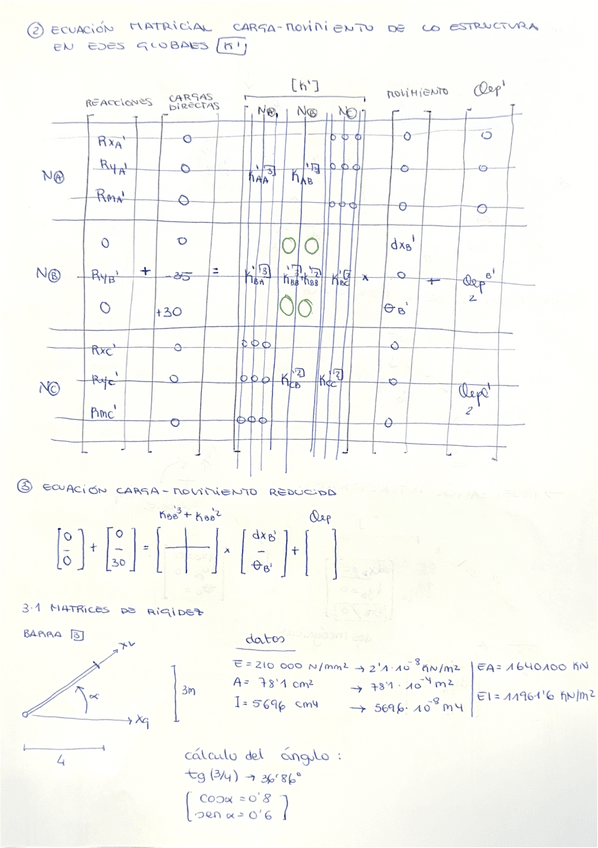 ② ECUACIÓN MATRICIAL CARGA-MOVIMIENTO DE LA ESTRUCTURA
EN EJES GLOBALES [K']
[K']
REACCIONES CARGAS DIRECTAS NⒶ NⒷ NⒸ MOVIMIENTO Qep'
RxA' 0 000 0 0
NⒶ RyA' 0 K'AA[3] K'AB[3] 000 0 0
RMA' 0 000 0 0
0 0 0 0 dxB'
NⒷ RyB' + -35 = K'BA[3] K'BB[3]+K'BB[2] K'BC[2] x 0 + Qep B' 2
0 +30 0 0 ΘB'
RxC' 0 000 0
NⒸ RyC' 0 000 K'CB[2] K'CC[2] 0 QepC' 2
RMC' 0 000 0
③ ECUACIÓN CARGA-MOVIMIENTO REDUCIDA
KBB'3 + KBB'2 Qep
[0 0] + [0 30] = [ ] x [dxB' ΘB'] + [ ]
3.1 MATRICES DE RIGIDEZ
BARRA [3]
XL
α
Xg
3m
4
datos
E = 210 000 N/mm2 → 2'1·10^-8 KN/m2 EA = 1640100 KN
A = 78'1 cm2 → 78'1·10^-4 m2
I = 5696 cm4 → 5696·10^-8 m4 EI = 11961'6 KN/m2
cálculo del ángulo:
tg (3/4) → 36'86º
[cosα = 0'8
sen α = 0'6]